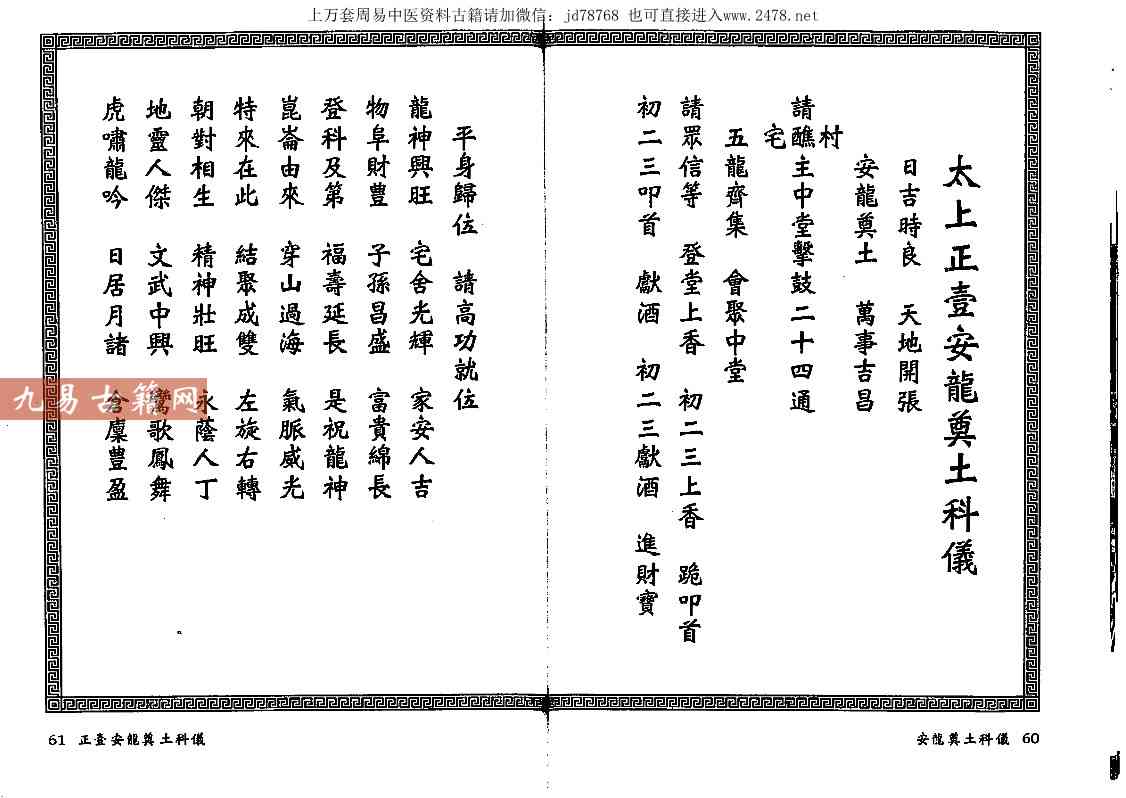 上万套周易中医资料古籍请加微信：jd78768 也可直接进入www.2478.net
太上正壹安龍奠土科儀
日吉時良 天地開張
安龍奠土 萬事吉昌
村
請醮主中堂擊鼓二十四通
宅
五龍齊集 會聚中堂
請眾信等 登堂上香 初二三上香 跪叩首
初二三叩首 獻酒 初二三獻酒 進財寶
安龍奠土科儀 60
平身歸位 請高功就位
龍神興旺 宅舍光輝 家安人吉
物阜財豐 子孫昌盛 富貴綿長
登科及第 福壽延長 是祝龍神
崑崙由來 穿山過海 氣脈威光
特來在此 結聚成雙 左旋右轉
朝對相生 精神壯旺 永蔭人丁
地靈人傑 文武中興 鸞歌鳳舞
虎嘯龍吟 日居月諸 倉廩豐盈
61 正壹安龍奠土科儀
九易古籍网